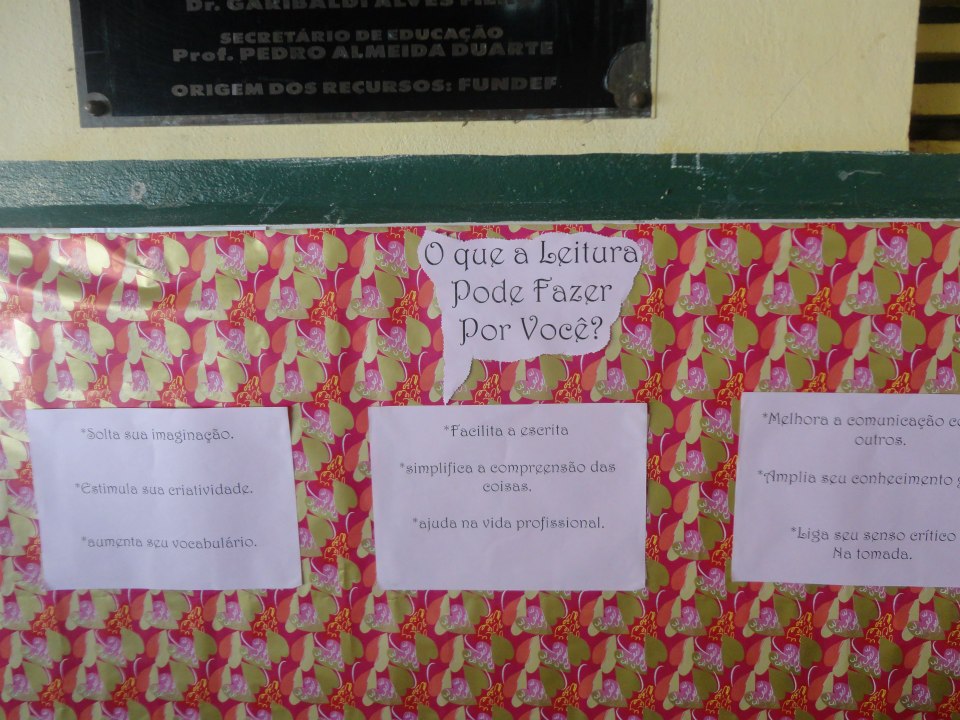 Dr. GARIBALDI ALVES FILHO
SECRETÁRIO DE EDUCAÇÃO
Prof. PEDRO ALMEIDA DUARTE
ORIGEM DOS RECURSOS: FUNDEF
O que a Leitura
Pode Fazer
Por Você?
*Solta sua imaginação.
*Estimula sua criatividade.
*aumenta seu vocabulário.
*Facilita a escrita
*simplifica a compreensão das
coisas.
*ajuda na vida profissional.
*Melhora a comunicação
outros.
*Amplia seu conhecimento
*Liga seu senso crítico
Na tomada.